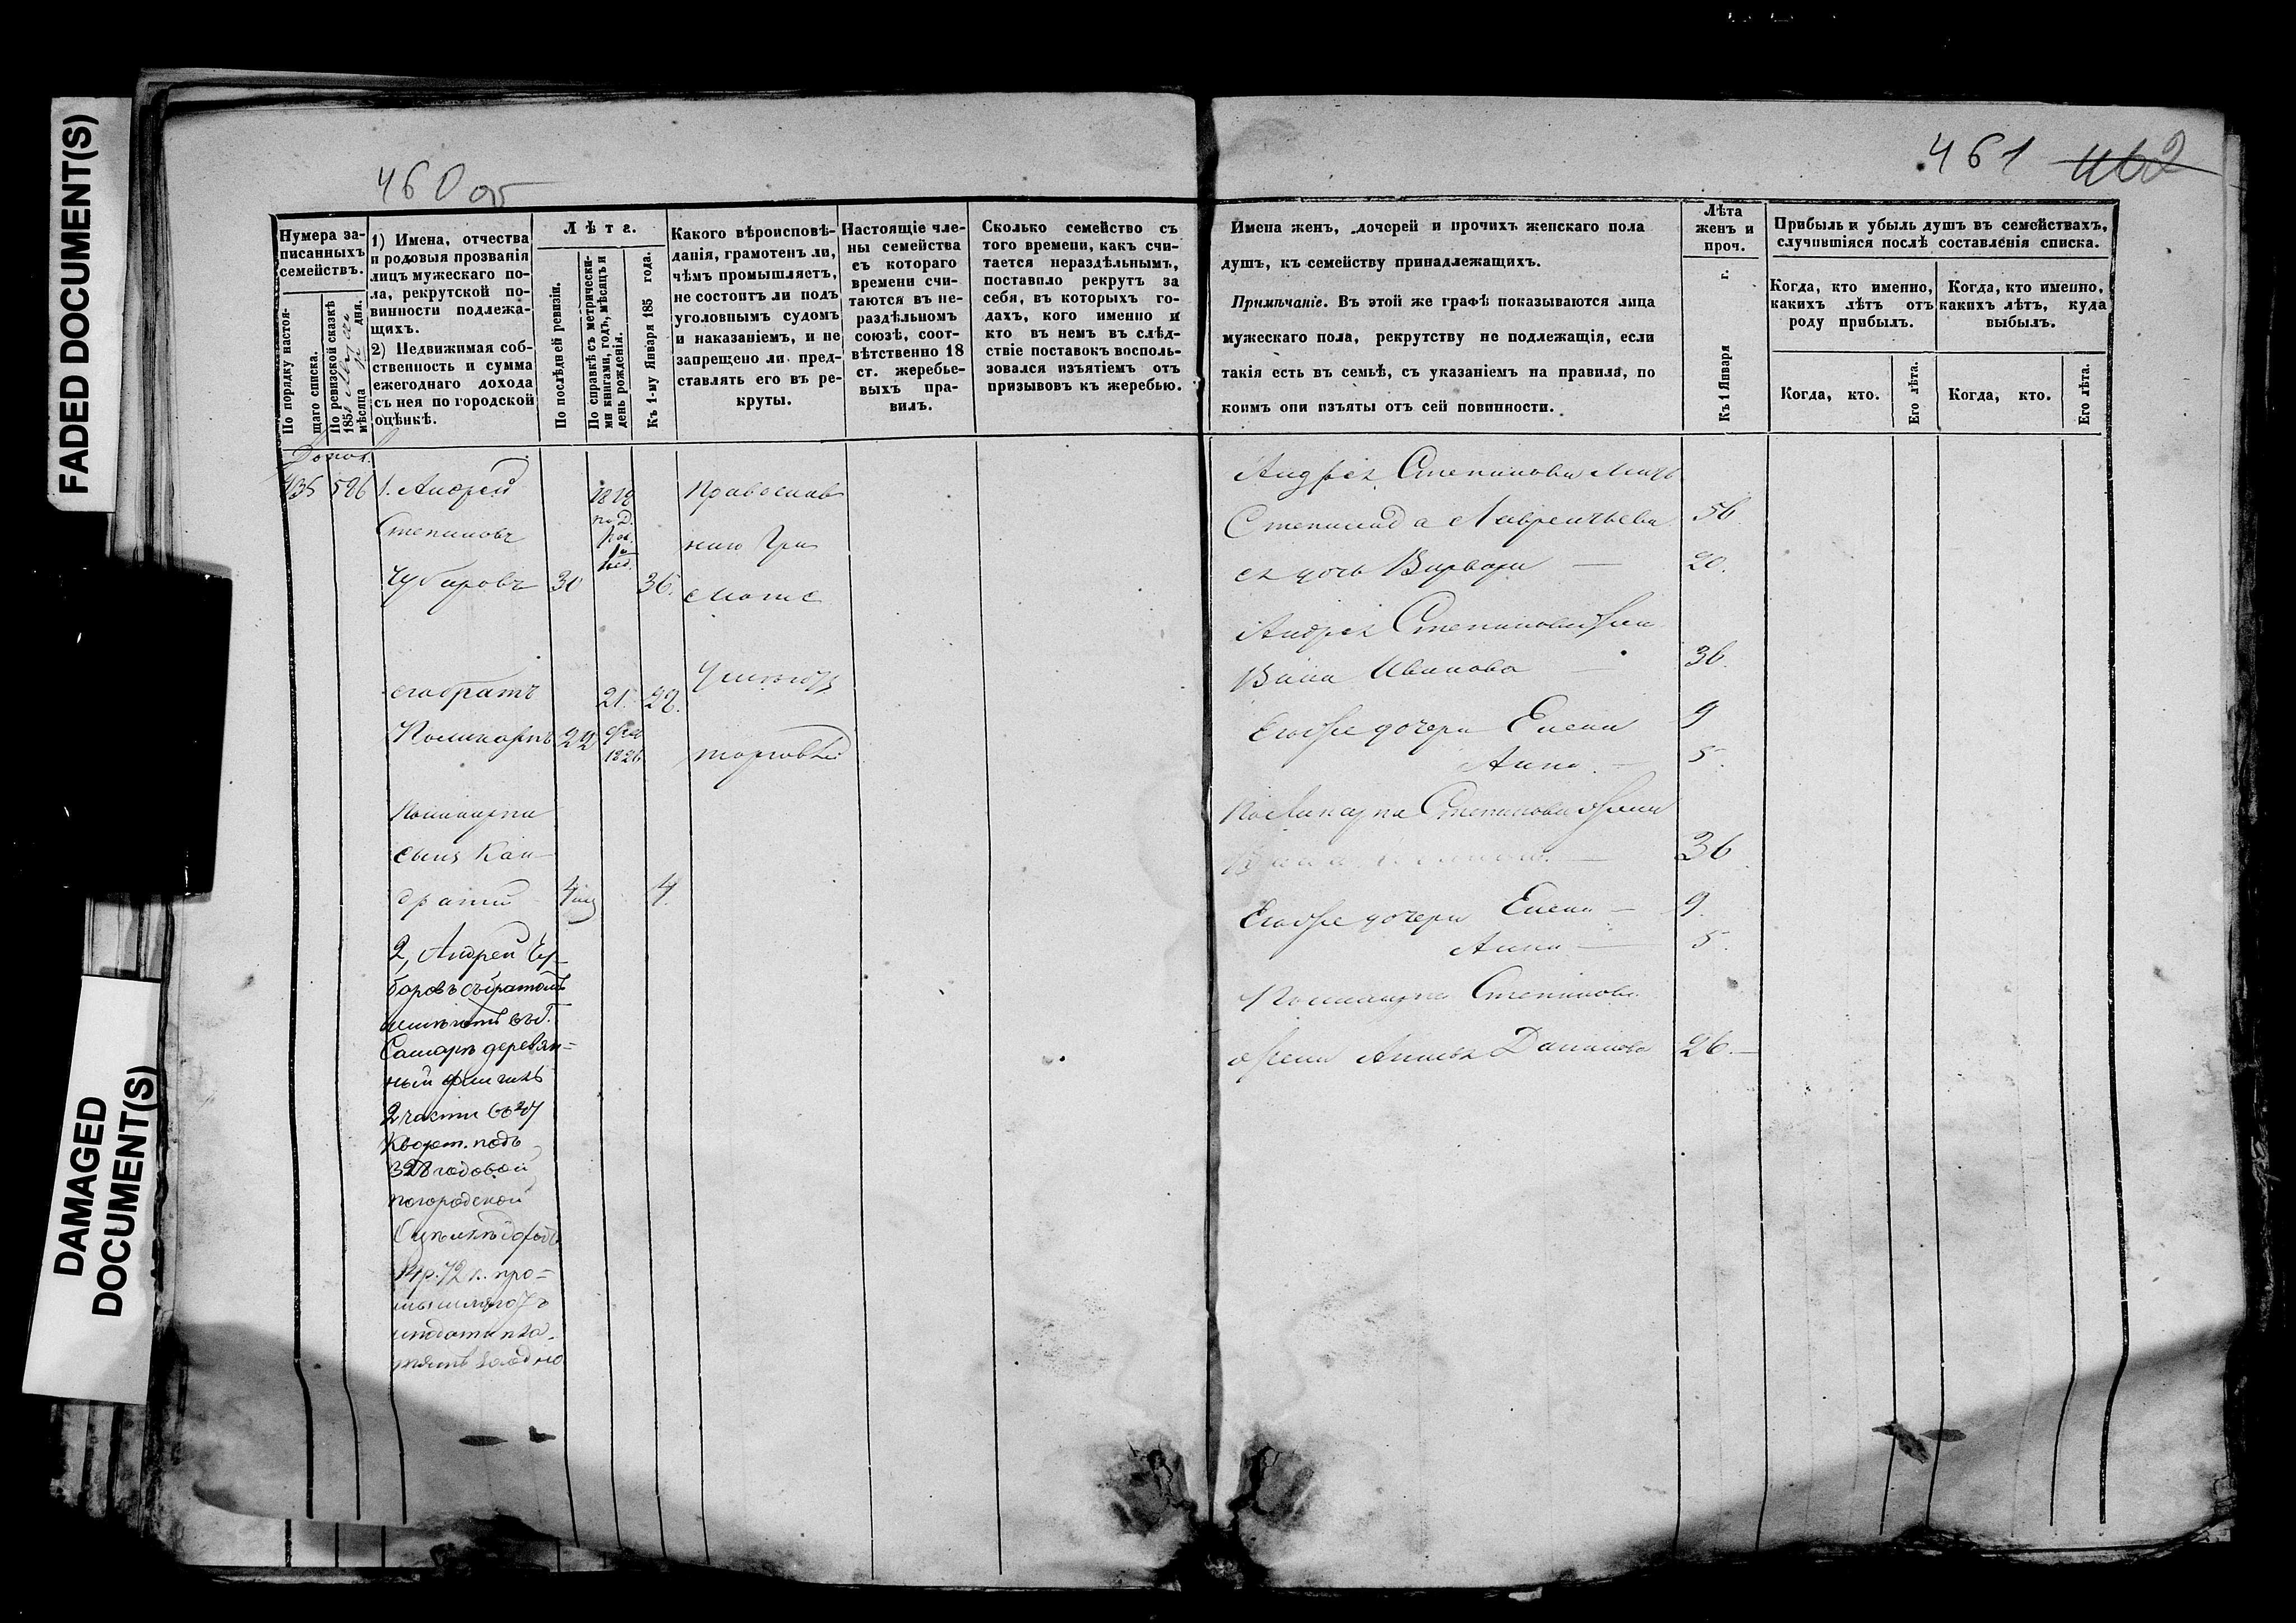 FADED DOCUMENT(S)
DAMAGED
DOCUMENT(S)
460 об
Нумера за-
писанныхъ
семействъ.
По порядку настоя-
щаго списка.
По ревизской сказкѣ
185
мѣсяца дня.
1) Имена, отчества
и родовыя прозванія
лицъ мужескаго по-
ла, рекрутской по-
винности подлежа-
щихъ.
2) Недвижимая соб-
ственность и сумма
ежегоднаго дохода
съ нея по городской
оцѣнкѣ.
Лѣта.
По послѣдней ревизіи.
По справкѣ съ метрически-
ми книгами, годъ, мѣсяцъ и
день рожденія.
Къ 1-му Января 185 года.
Какого вѣроисповѣ-
данія, грамотенъ ли,
чѣмъ промышляетъ,
не состоитъ ли подъ
уголовнымъ судомъ
и наказаніемъ, и не
запрещено ли пред-
ставлять его въ ре-
круты.
Настоящіе чле-
ны семейства
съ котораго
времени счи-
таются въ не-
раздѣльномъ
союзѣ, соот-
вѣтственно 18
ст. жеребье-
выхъ пра-
вилъ.
Сколько семейство съ
того времени, какъ счи-
тается нераздѣльнымъ,
поставило рекрутъ за
себя, въ которыхъ го-
дахъ, кого именно и
кто въ немъ въ слѣд-
ствіе поставокъ восполь-
зовался изъятіемъ отъ
призывовъ къ жеребью.
Допол.
435 526 1. Андрей
Степановъ
Чубаровъ 30 36.
Православ
его братъ 21. 28.
Поликарпъ 22 Фев
1826
торговлей
Поликарпа
сынъ Кан-
дратій 4
2, Андрей Чу-
баровъ съ братомъ
имѣютъ въ г.
Самарѣ деревян-
ный флигель
2 части въ 24
кварт. подъ
328 годовой
погородской
Оцѣнкѣ доходъ
14 р. 72 к. про-
461 462
Имена женъ, дочерей и прочихъ женскаго пола
душъ, къ семейству принадлежащихъ.
Примѣчаніе. Въ этой же графѣ показываются лица
мужескаго пола, рекрутству не подлежащія, если
такія есть въ семьѣ, съ указаніемъ на правила, по
коимъ они изъяты отъ сей повинности.
Лѣта
женъ и
проч.
Къ 1 Января г.
Прибыль и убыль душъ въ семействахъ,
случившіяся послѣ составленія списка.
Когда, кто именно,
какихъ лѣтъ отъ
роду прибылъ.
Когда, кто именно,
какихъ лѣтъ, куда
выбылъ.
Когда, кто.
Его лѣта.
Когда, кто.
Его лѣта.
Андрея Степанова мать
Степанида Лаврентьева 56
ея дочь Варвара — 20.
Андрея Степанова жена
Иванова — 36.
Его же дочери Елена 9
Анна — 5.
Поликарпа Степанова жена
36
Его же дочери Елена — 9.
Анна — 5.
Поликарпа Степанова
жена Данилова 26.—